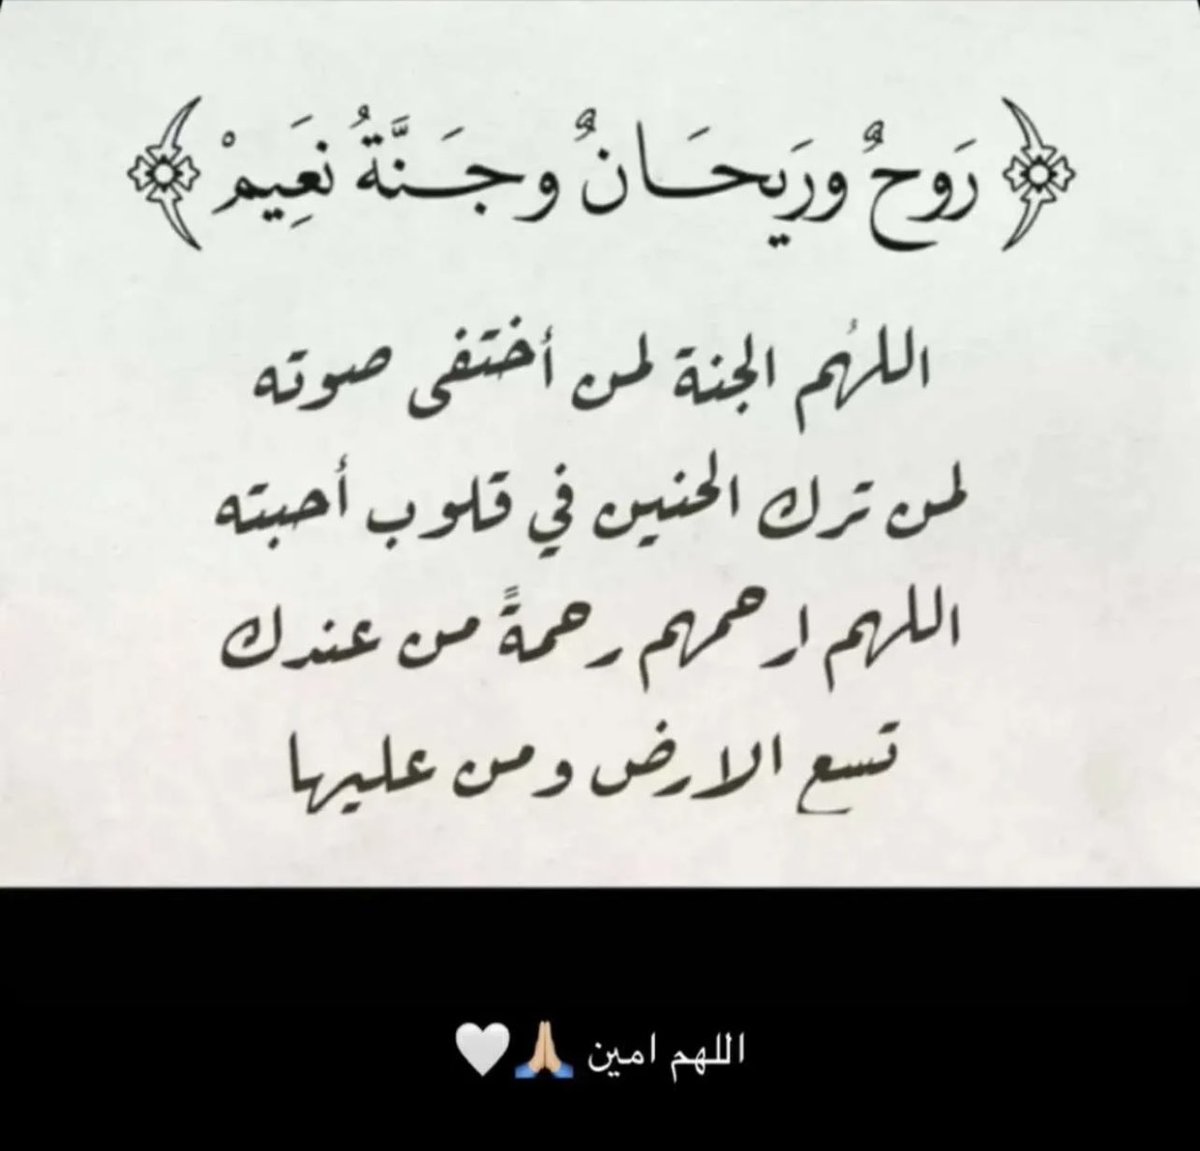 ﴿ رَوحٌ ورَيحَانٌ وجَنَّةُ نَعَيِمْ ﴾
اللهُم الجنة لمن أختفى صوته
لمن ترك الحنين في قلوب أحبته
اللهم ارحمهم رحمةً من عندك
تسع الارض ومن عليها
اللهم امين 🙏🏼🤍